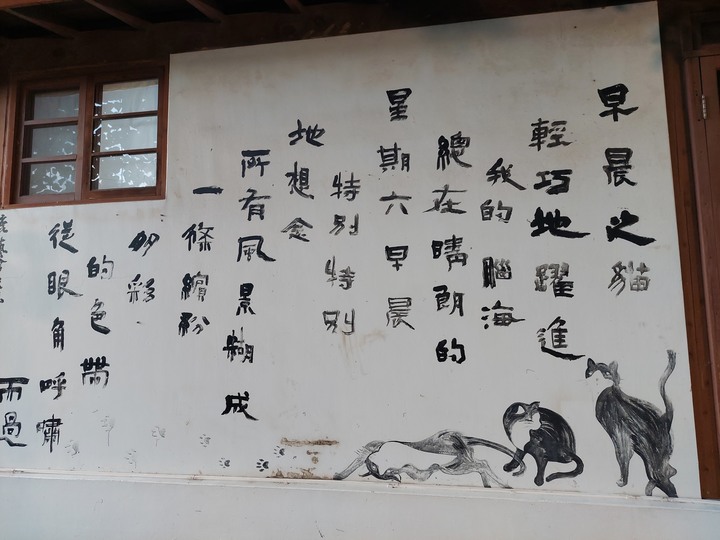 早晨之貓
輕巧地躍進
我的腦海
總在晴朗的
星期六早晨
特別特別
地想念
所有風景糊成
一條繽紛
多彩、
的色帶
從眼角呼嘯
而過